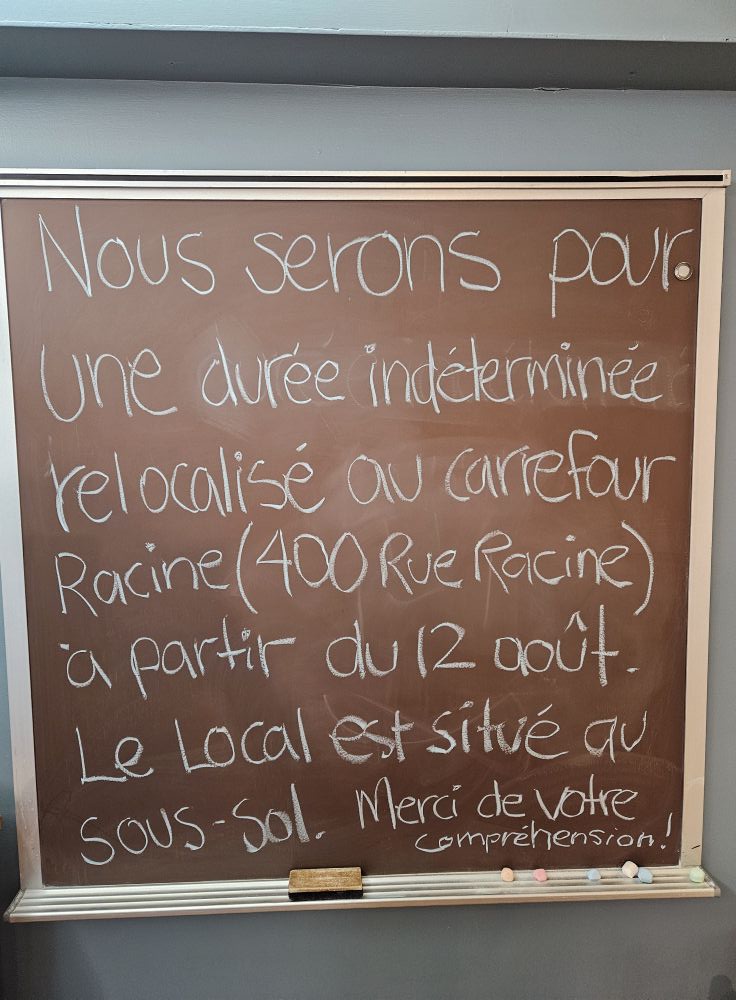 Nous serons pour
une durée indéterminée
relocalisé au carrefour
Racine (400 Rue Racine)
à partir du 12 août.
Le Local est situé au
sous-sol. Merci de votre
compréhension!